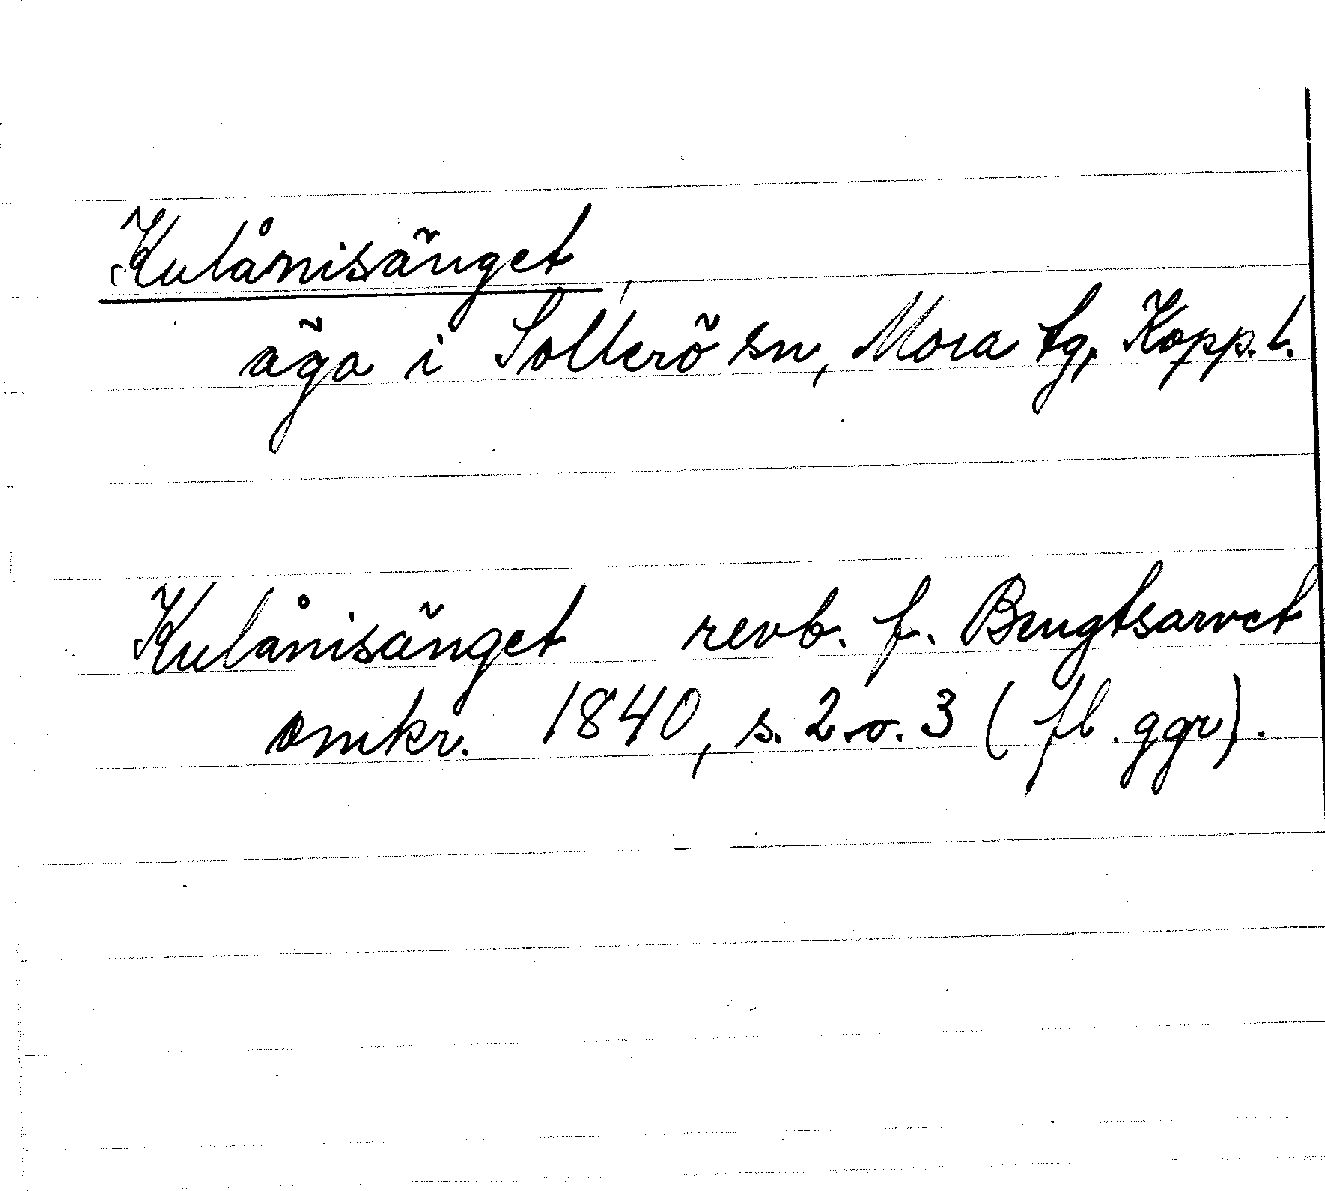 Kulånisänget
äga i Sollerö sn, Mora tg, Kopp. l.
Kulånisänget revb. f. Bengtsarvet
omkr. 1840, s. 2 o. 3 (fl. ggr).